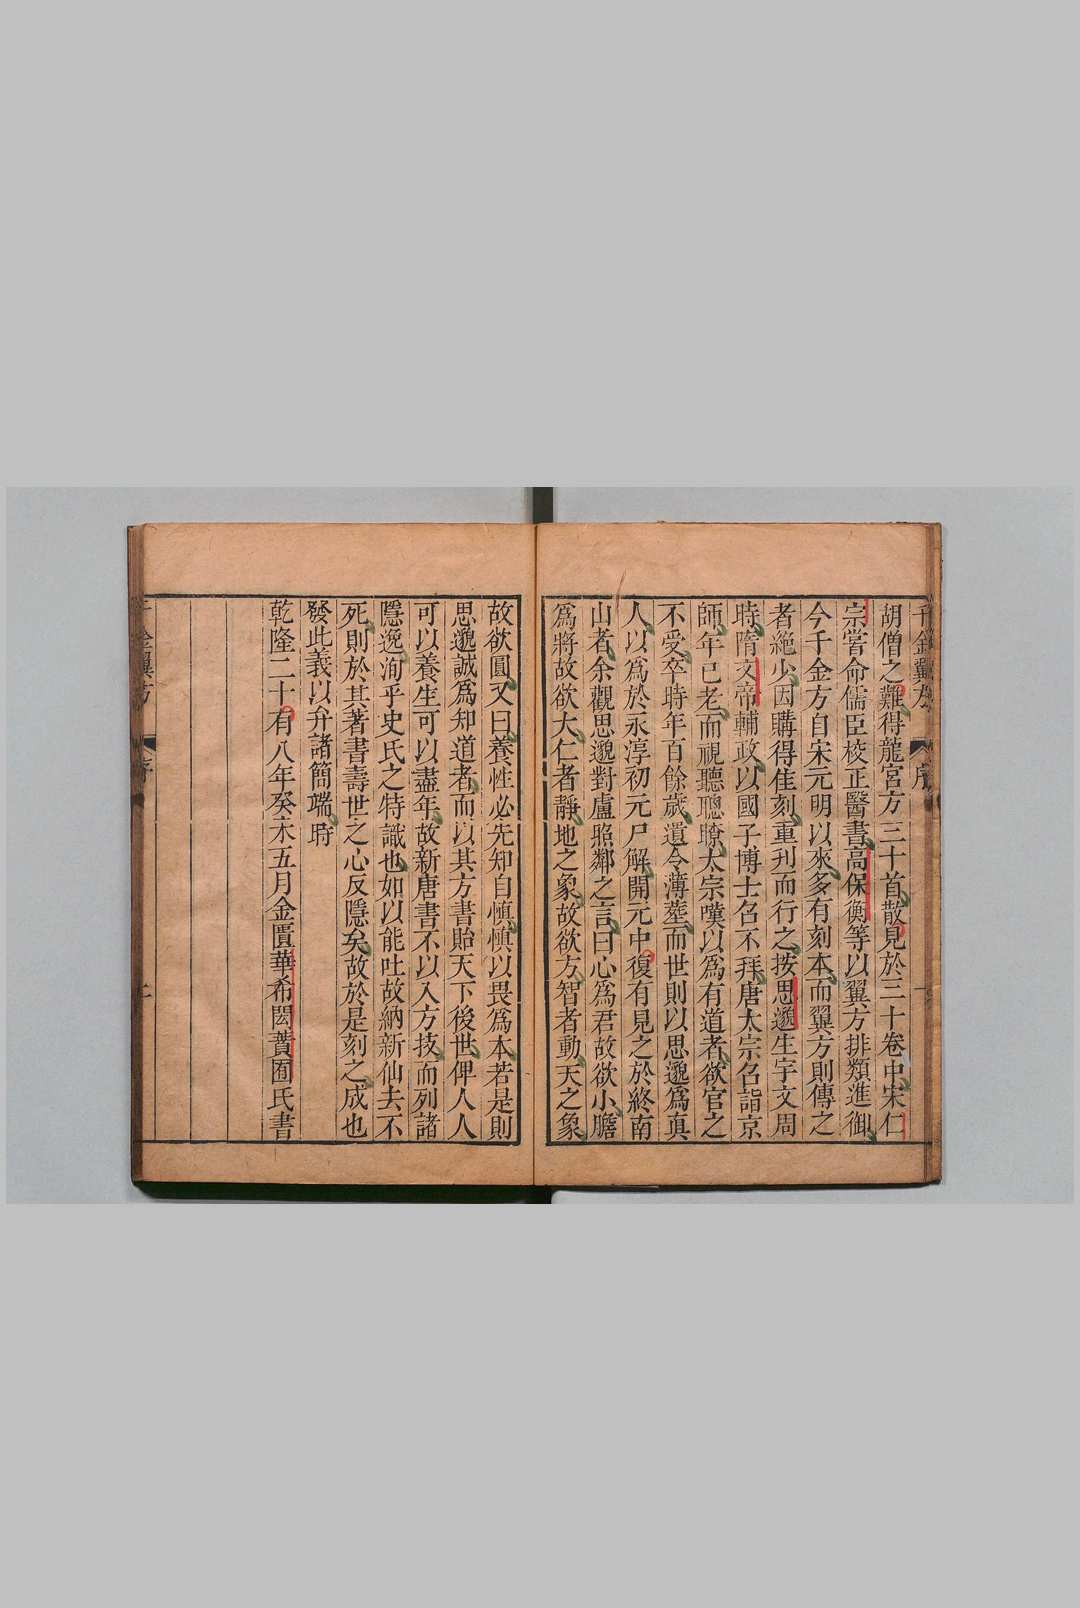 千金翼方 序 一
胡僧之難得龍宮方三十首散見於三十卷中宋仁
宗嘗命儒臣校正醫書高保衡等以翼方排類進御
今千金方自宋元明以來多有刻本而翼方則傳之
者絶少因購得佳刻重刋而行之按思邈生宇文周
時隋文帝輔政以國子博士召不拜唐太宗召詣京
師年已老而視聽聰瞭太宗嘆以爲有道者欲官之
不受卒時年百餘歲遺令薄葬而世則以思邈爲真
人以爲於永淳初元尸解開元中復有見之於終南
山者余觀思邈對盧照鄰之言曰心爲君故欲小膽
爲將故欲大仁者靜地之象故欲方智者動天之象
故欲圓又曰養性必先知自慎慎以畏爲本若是則
思邈誠爲知道者而以其方書貽天下後世俾人人
可以養生可以盡年故新唐書不以入方技而列諸
隱逸洵乎史氏之特識也如以能吐故納新仙去不
死則於其著書壽世之心反隱矣故於是刻之成也
發此義以弁諸簡端時
乾隆二十有八年癸未五月金匱華希閎蕡囿氏書
千金翼方 序 二